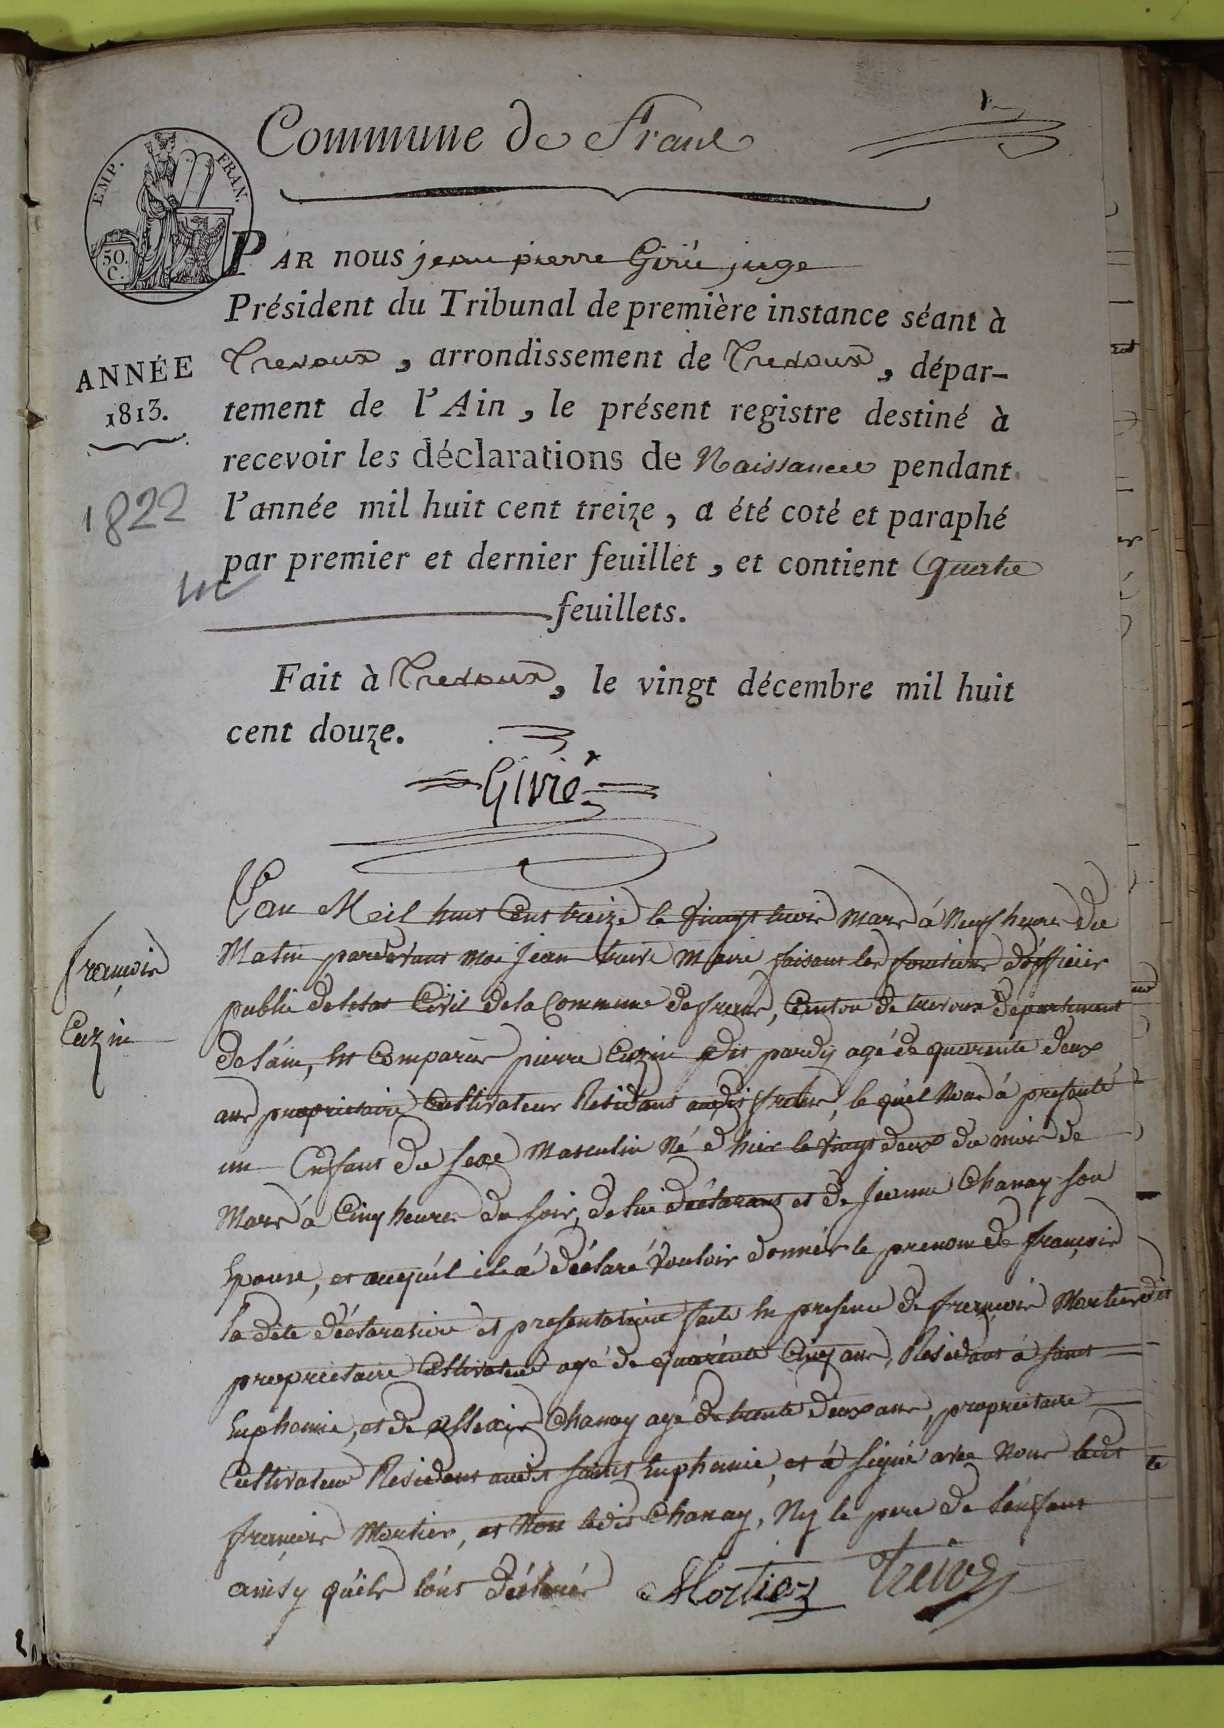 Commune de Frans
EMP. FRAN.
50. C.
PAR nous jean pierre Girié juge
Président du Tribunal de première instance séant à
Trevoux, arrondissement de Trevoux, dépar-
ANNÉE
1813.
tement de l'Ain, le présent registre destiné à
recevoir les déclarations de Naissance pendant
1822
l'année mil huit cent treize, a été coté et paraphé
par premier et dernier feuillet, et contient quatre
feuillets.
Fait à Trevoux, le vingt décembre mil huit
cent douze.
Girié
françois
Cuzin
L'an Mil huit Cent treize le vingt trois Mars à Neuf heures du
Matin pardevant moi Jean Maire faisant les fonctions d'officier
public de létat Civil de la Commune de frans, Canton de trevoux departement
de l'ain, est Comparu pierre Cuzin dit pardy agé de quarente deux
ans propriétaire Cultivateur Residant audit frans, le quel Nous à presenté
un Enfant du sexe Masculin Né d'hier le vingt deux du mois de
Mars à Cinq heures du soir, de lui déclarant et de Jeanne Chanay son
Epouse, et auquel il à déclaré vouloir donner le prenom de françois
la dite déclaration et presentation faite en presence de françois Mortier
propriétaire Cultivateur agé de quarente Cinq ans, Residant à saint
Euphemie, et de Chanay agé de trente deux ans, propriétaire
Cultivateur Residant audit sainte Euphemie, et à signé avec Nous ledit
françois Mortier, et Non ledit Chanay, Ny le pere de lenfant
ainsy qu'ils lont déclaré Mortier